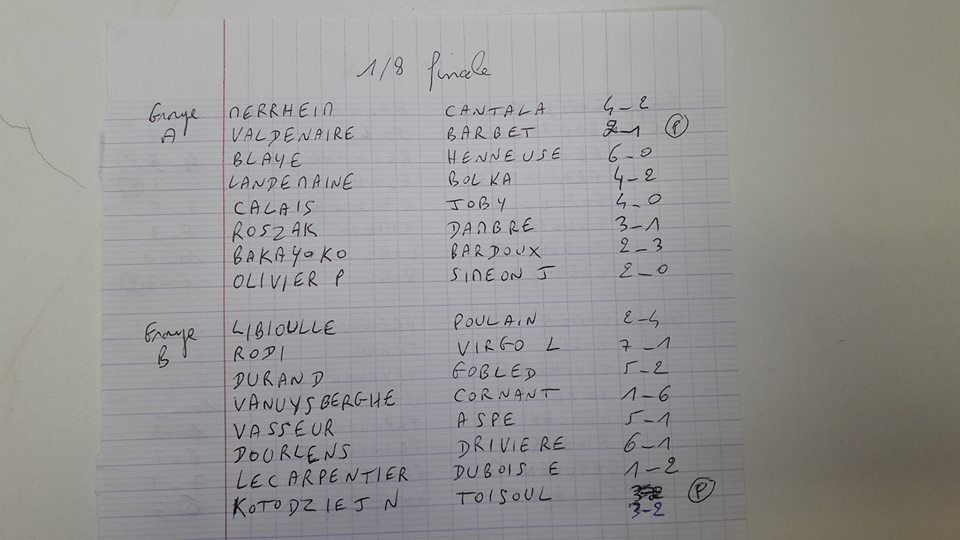 1/8 finale
Groupe A MERRHEIM CANTALA 4-2
VALDENAIRE BARBET 2-1 P
BLAYE HENNEUSE 6-0
LANDEMAINE BOLKA 4-2
CALAIS JOBY 4-0
ROSZAK DAMBRE 3-1
BAKAYOKO BARDOUX 2-3
OLIVIER P SIMEON J 2-0
Groupe B LIBIOULLE POULAIN 2-4
RODI VIRGO L 7-1
DURAND GOBLED 5-2
VANUYSBERGHE CORNANT 1-6
VASSEUR ASPE 5-1
DOURLENS DRIVIERE 6-1
LECARPENTIER DUBOIS E 1-2
KOTODZIEJ N TOISOUL 3-2 P